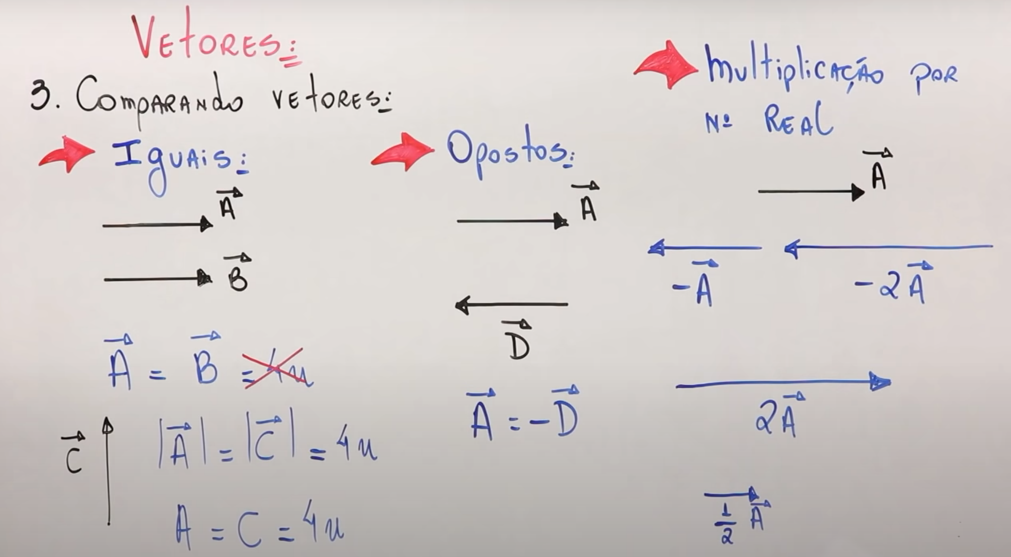 VETORES:
3. COMPARANDO VETORES:
IGUAIS:
A⃗
B⃗
A⃗ = B⃗ = 4u
C⃗
|A⃗| = |C⃗| = 4u
A = C = 4u
OPOSTOS:
A⃗
D⃗
A⃗ = -D⃗
MULTIPLICAÇÃO POR
Nº REAL
A⃗
-A⃗
-2A⃗
2A⃗
1/2 A⃗